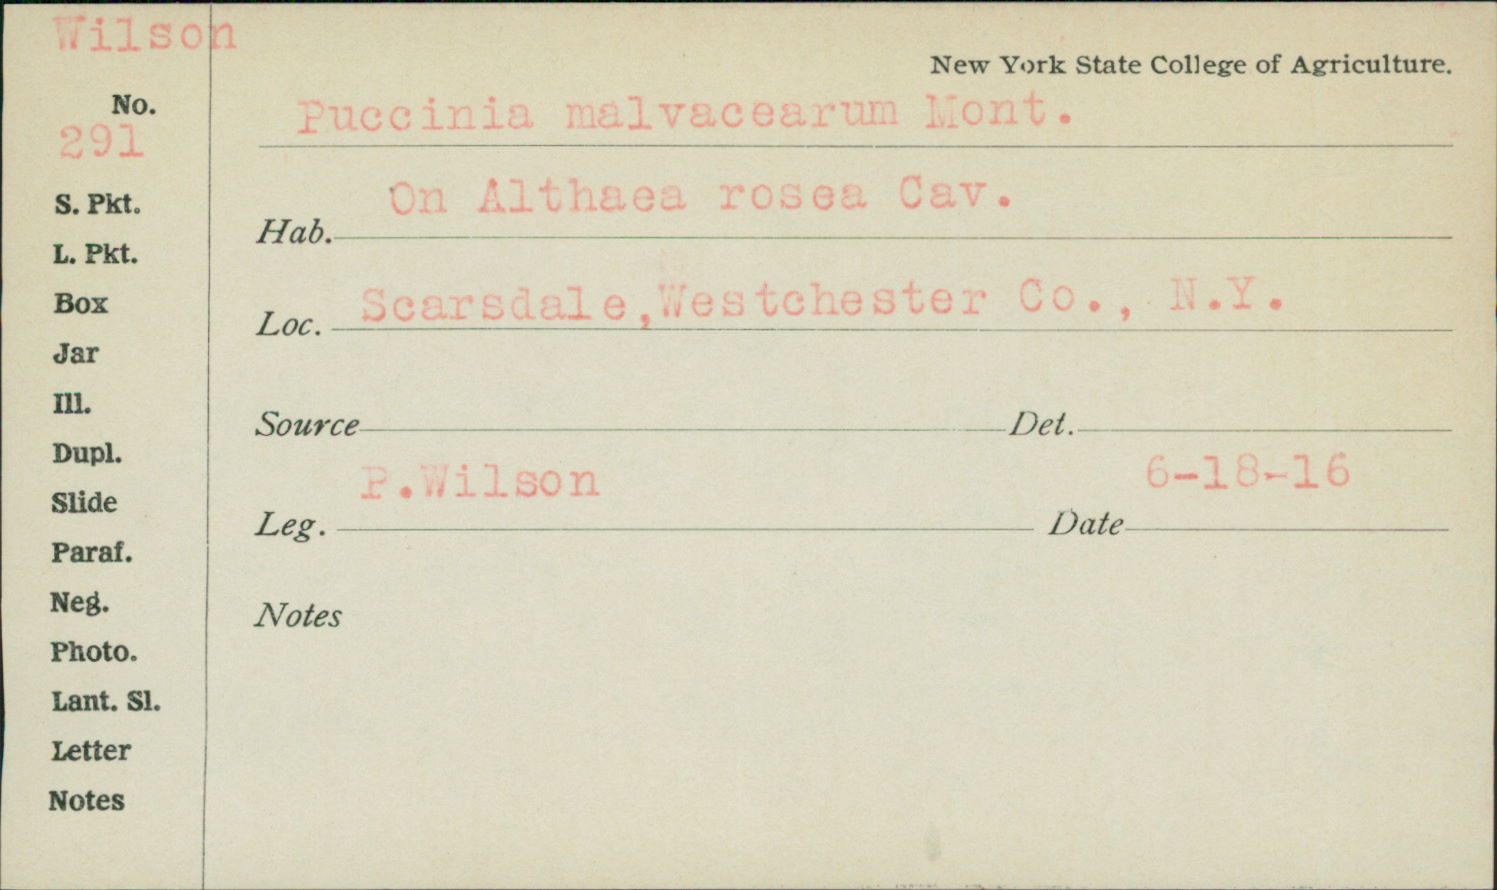 Wilson
New York State College of Agriculture.
No.
291
Puccinia malvacearum Mont.
S. Pkt.
Hab. On Althaea rosea Cav.
L. Pkt.
Box
Loc. Scarsdale,Westchester Co., N.Y.
Jar
Ill.
Source Det.
Dupl.
Slide
Leg. P.Wilson Date 6-18-16
Paraf.
Neg.
Notes
Photo.
Lant. Sl.
Letter
Notes